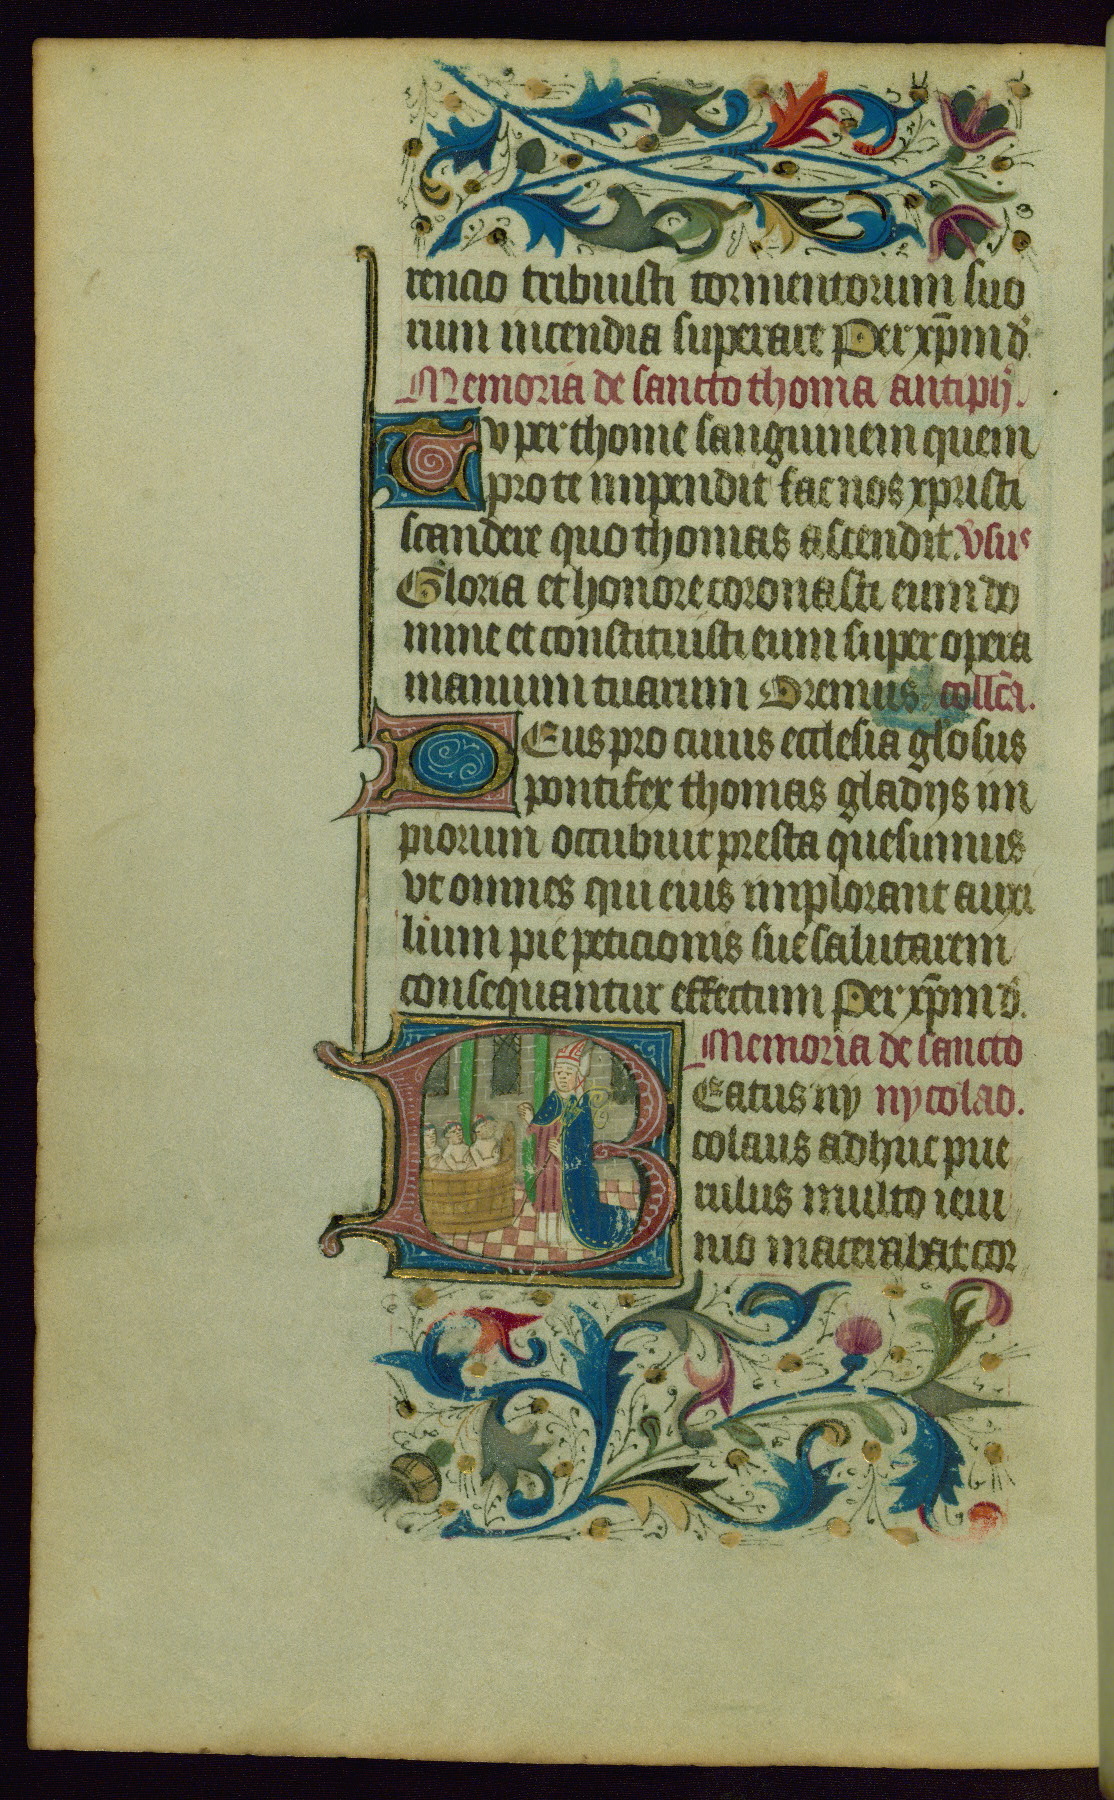 rencio tribuisti tormentorum suo
rum incendia superare Per xp̄m d̄.
Memoria de sancto thoma antiph̄.
Tu per thome sanguinem quem
pro te inpendit fac nos xpristi
scandere quo thomas ascendit. v̄sus
Gloria et honore coronasti eum do
mine et constituisti eum super opera
manuum tuarum Oremus collc̄a.
DEus pro cuius ecclesia gl̄osus
pontifex thomas gladijs im
piorum occubuit presta quesumus
vt omnes qui eius implorant auxi
lium pie peticionis sue salutarem
consequantur effectum Per xp̄m d̄.
Memoria de sancto
BEatus ny nycolao.
colaus adhuc pue
rulus multo ieiu
nio macerabat cor